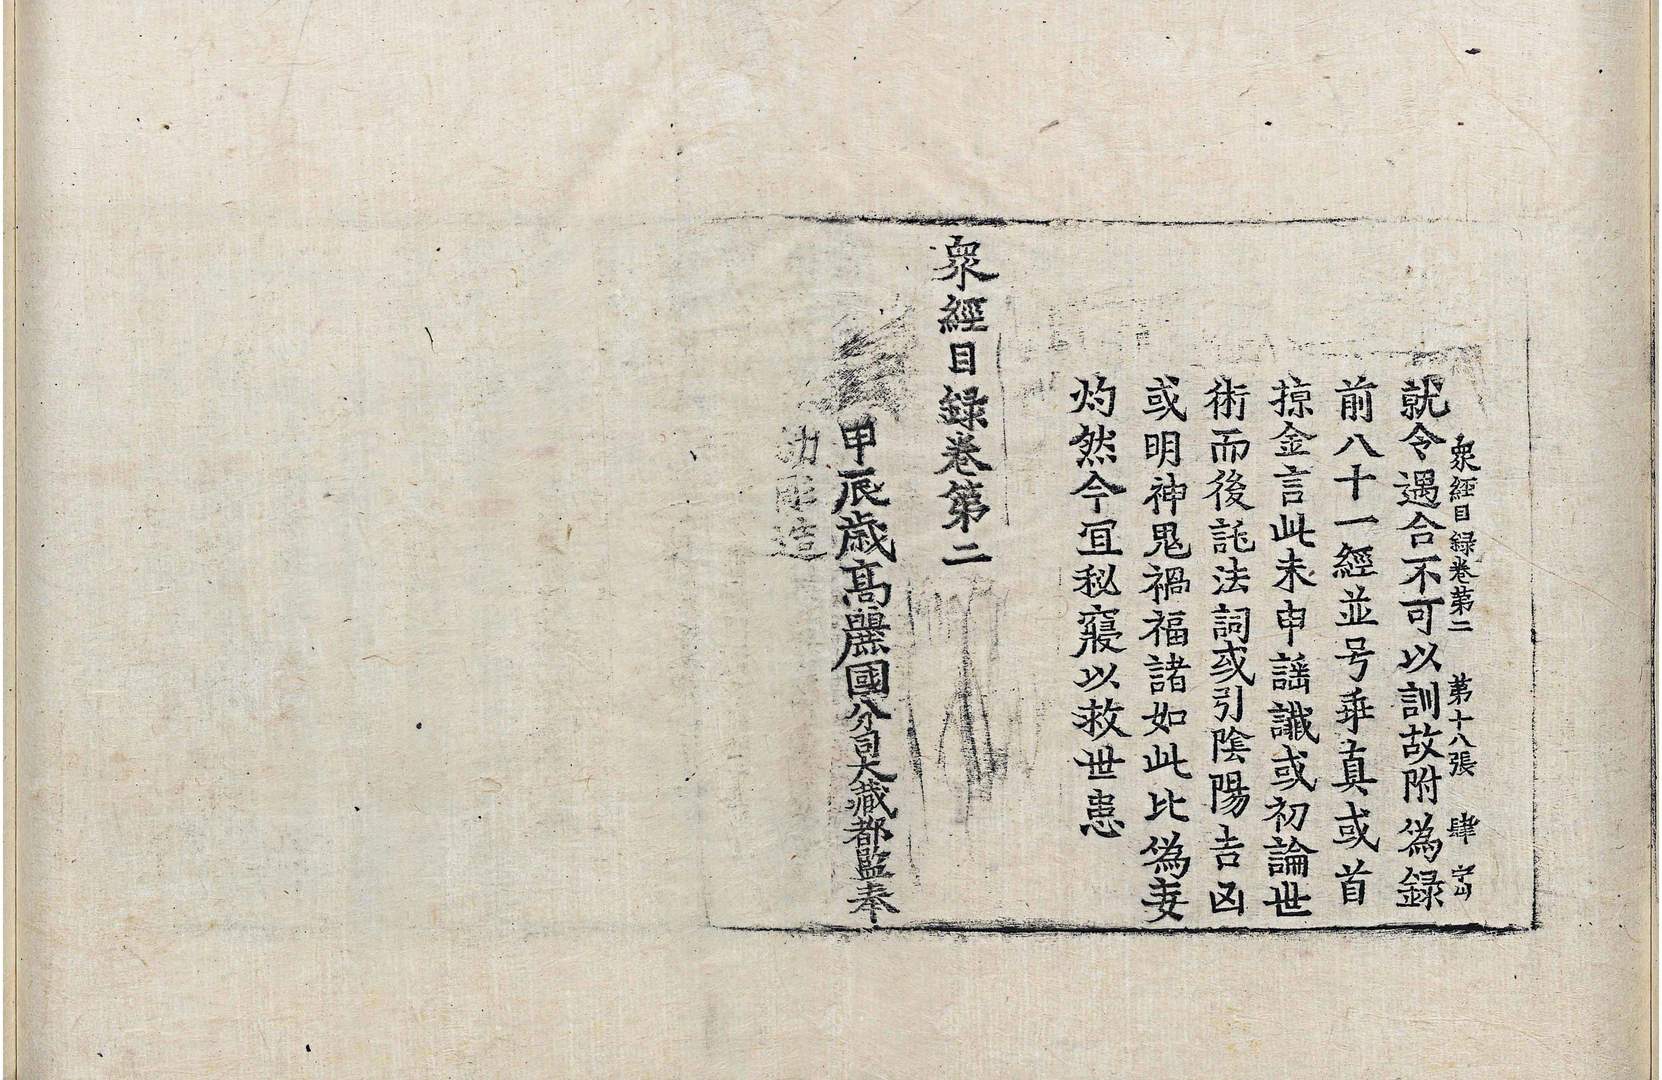 衆經目録卷第二 第十八張 肆
就令遇合不可以訓故附為録
前八十一經並号乖真或首
掠金言此未申謡讖或初論世
術而後託法詞或引陰陽吉凶
或明神鬼禍福諸如此比為妄
灼然今宜秘寢以救世患
衆經目録卷第二
甲辰歳高麗國分司大藏都監奉
勑彫造